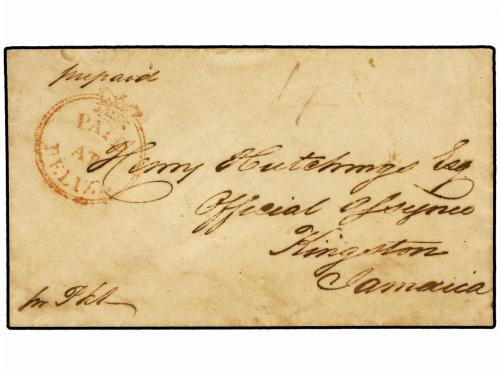 prepaid
PAID
AT
BELIZE
Henry Hutchings Esq
Official Assignee
Kingston
Jamaica
pr Pkt